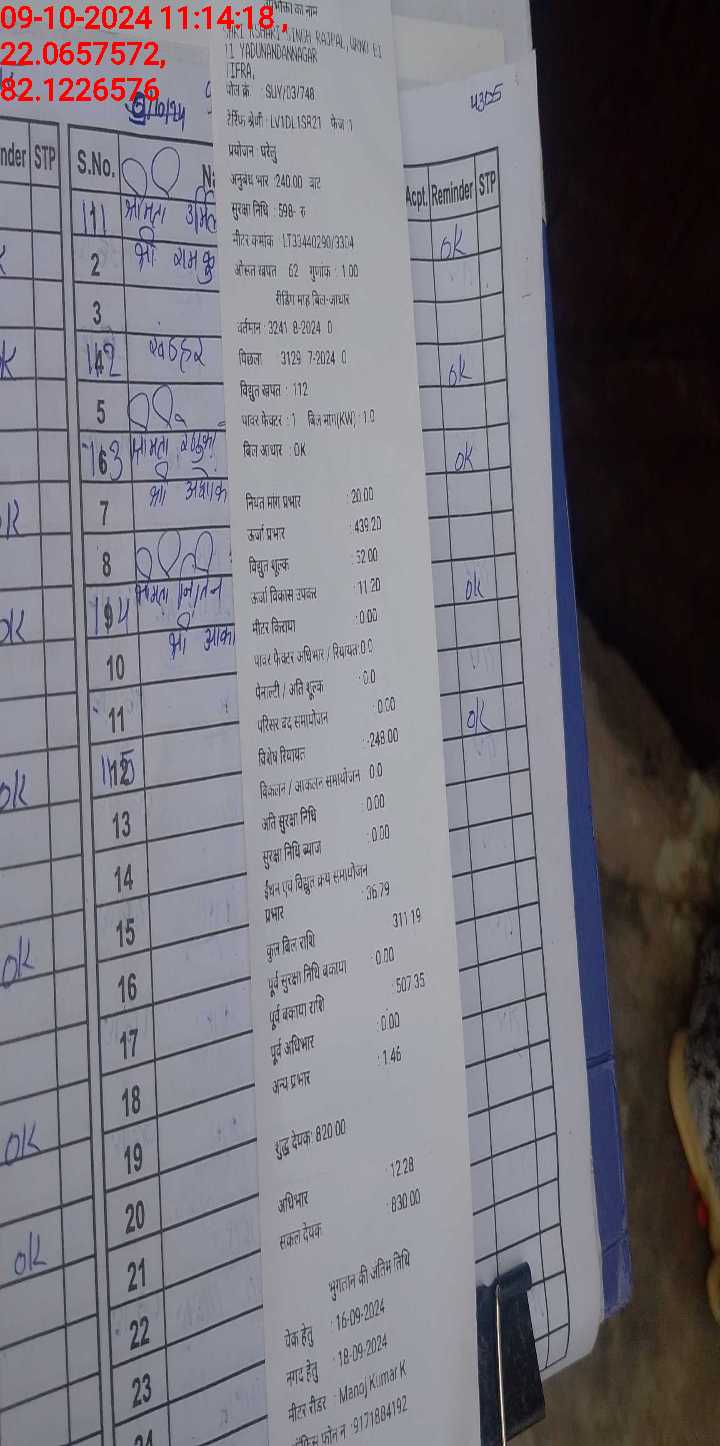 09-10-2024 11:14:18,
22.0657572,
82.1226576
का नाम
YADUNANDANNAGAR
TIFRA,
पोल क्रं : SUY/03/748
टैरिफ श्रेणी : LV1DL1SR21 फेज 1
प्रयोजन घरेलु
अनुबंध भार 240.00 वाट
सुरक्षा निधि : 598- रु
मीटर कमांक LT33440290/3304
औसत खपत 62 गुणांक : 1.00
रीडिंग माह बिल-आधार
वर्तमान : 3241 8-2024 0
पिछला : 3129 7-2024 0
विद्युत खपत : 112
पावर फेक्टर : 1 बिल मांग(KW) : 1.0
बिल आधार : OK
नियत मांग प्रभार : 20.00
ऊर्जा प्रभार : 439.20
विद्युत शुल्क : 52.00
ऊर्जा विकास उपकर : 11.20
मीटर किराया : 0.00
पावर फेक्टर अधिभार / रियायत:0.0
पेनाल्टी / अति शुल्क : 0.0
परिसर बंद समायोजन : 0.00
विशेष रियायत : -248.00
विकलन / आकलन समायोजन 0.0
अति सुरक्षा निधि : 0.00
सुरक्षा निधि ब्याज : 0.00
ईंधन एवं विद्युत क्रय समायोजन
प्रभार : 36.79
कुल बिल राशि 311.19
पूर्व सुरक्षा निधि बकाया : 0.00
पूर्व बकाया राशि : 507.35
पूर्व अधिभार : 0.00
अन्य प्रभार : 1.46
शुद्ध देयक: 820.00
अधिभार : 12.28
सकल देयक : 830.00
भुगतान की अंतिम तिथि
चेक हेतु : 16-09-2024
नगद हेतु : 18-09-2024
मीटर रीडर : Manoj Kumar K
फोन न : 9171884192
4305
nder STP S.No. Acpt. Reminder STP
111 श्रीमती ok
2 श्री
3
4 112 ok
5
6 113 श्रीमती ok
7 श्री
8
9 114 श्रीमती ok
10 श्री
11 ok
12 115
13
14
15
16
17
18
19
20
21
22
23
24
ok
ok
ok
ok
ok